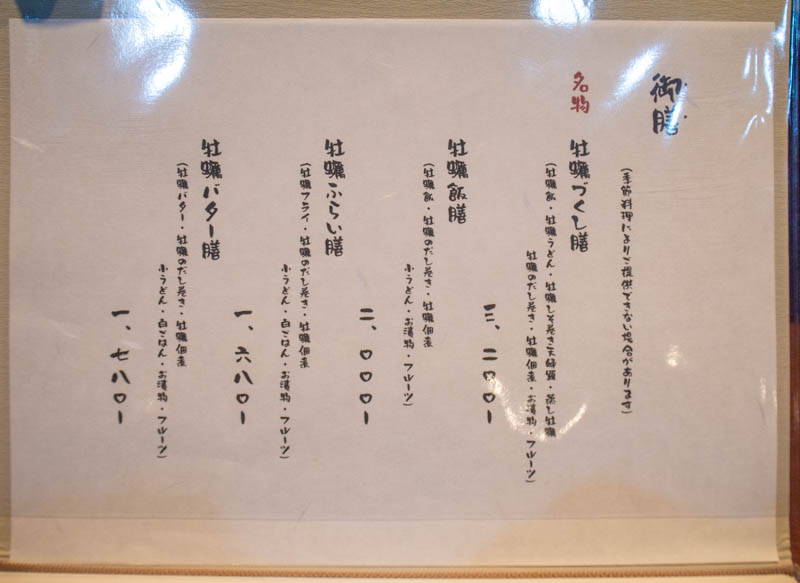 御膳
(季節料理によりご提供できない場合があります)
名物
牡蠣づくし膳
(牡蠣飯・牡蠣うどん・牡蠣しそ巻き天婦羅・蒸し牡蠣
牡蠣のだし巻き・牡蠣佃煮・お漬物・フルーツ)
三、二〇〇ー
牡蠣飯膳
(牡蠣飯・牡蠣のだし巻き・牡蠣佃煮
小うどん・お漬物・フルーツ)
二、〇〇〇ー
牡蠣ふらい膳
(牡蠣フライ・牡蠣のだし巻き・牡蠣佃煮
小うどん・白ごはん・お漬物・フルーツ)
一、六八〇ー
牡蠣バター膳
(牡蠣バター・牡蠣のだし巻き・牡蠣佃煮
小うどん・白ごはん・お漬物・フルーツ)
一、七八〇ー